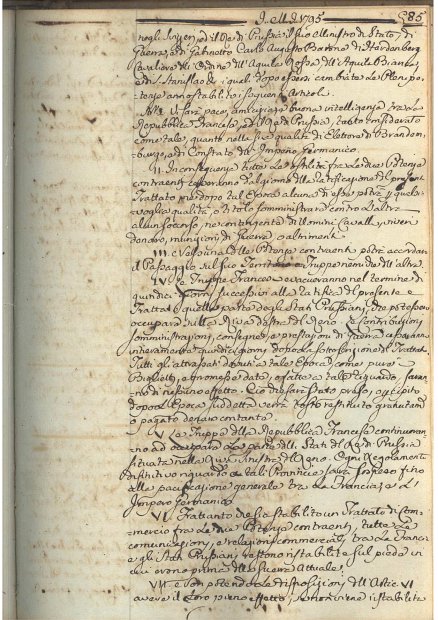 1795
285
negli Svizzeri, ed il Re di Prussia il suo Ministro di Stato, di
Guerra, e di Gabinetto Carlo Augusto Barone di Hardenberg
Cavaliere dell'Ordine dell'Aquila Rossa, dell'Aquila Bianca,
e di S. Stanislao, i quali dopo essersi cambiate le Plenipo-
tenze anno stabilito i seguenti Articoli
Art. I Vi sarà pace, amicizia, e buona intelligenza tra la
Repubblica Francese, ed il Re di Prussia, tanto considerato
come tale, quanto nella sua qualità di Elettore di Brandem-
burgo, e di Constato dell'Impero Germanico.
II In conseguenza tutte le ostilità fra le due Potenze
contraenti cesseranno dal giorno della Ratificazione del presente
Trattato, nè dopo tal Epoca alcuna di esse potrà, per qual-
sivoglia qualità, o titolo somministrare contro l'altra
alcun soccorso, nè contingente di Uomini, Cavalli, viveri
denaro, munizioni di guerra, o altrimenti
III L'una delle Potenze contraenti potrà accordare
il Passaggio sul suo Territorio a Truppe nemiche dell'altra.
IV Le Truppe Francesi evacueranno nel termine di
quindici giorni successivi alla Ratifica del presente
Trattato quella parte degli Stati Prussiani, che potessero
occupare sulla Riva destra del Reno. Le Contribuzioni
somministrazioni, consegne, e prestazioni di Guerra cesseranno
interamente quindici giorni dopo la sottoscrizione del Trattato
Tutti gli attrassati dovuti a tale Epoca, come pure i
Biglietti, e promesse date, o fatte a tale riguardo, saran-
no di nessun effetto. Ciò che sarà stato preso, o percepito
dopo l'Epoca suddetta verrà tosto restituito gratuitamente
o pagato denaro contante.
V Le Truppe della Repubblica Francese continueran-
no ad occupare la parte delli Stati del Re di Prussia
situata nella Riva sinistra del Reno. Ogni Regolamento
definitivo riguardo a tali Provincie sarà sospeso fino
alla pacificazione generale tra la Francia, e l'
Impero Germanico
VI Frattanto che sia stabilito un Trattato di Com-
mercio fra le due Potenze contraenti, tutte le
comunicazioni, e relazioni commerciali tra la Francia
e gli Stati Prussiani restano ristabilite sul piede in
cui erano prima della guerra attuale.
VII E non potendo le disposizioni dell'Artic. VI
avere il loro pieno effetto, se non viene ristabilita